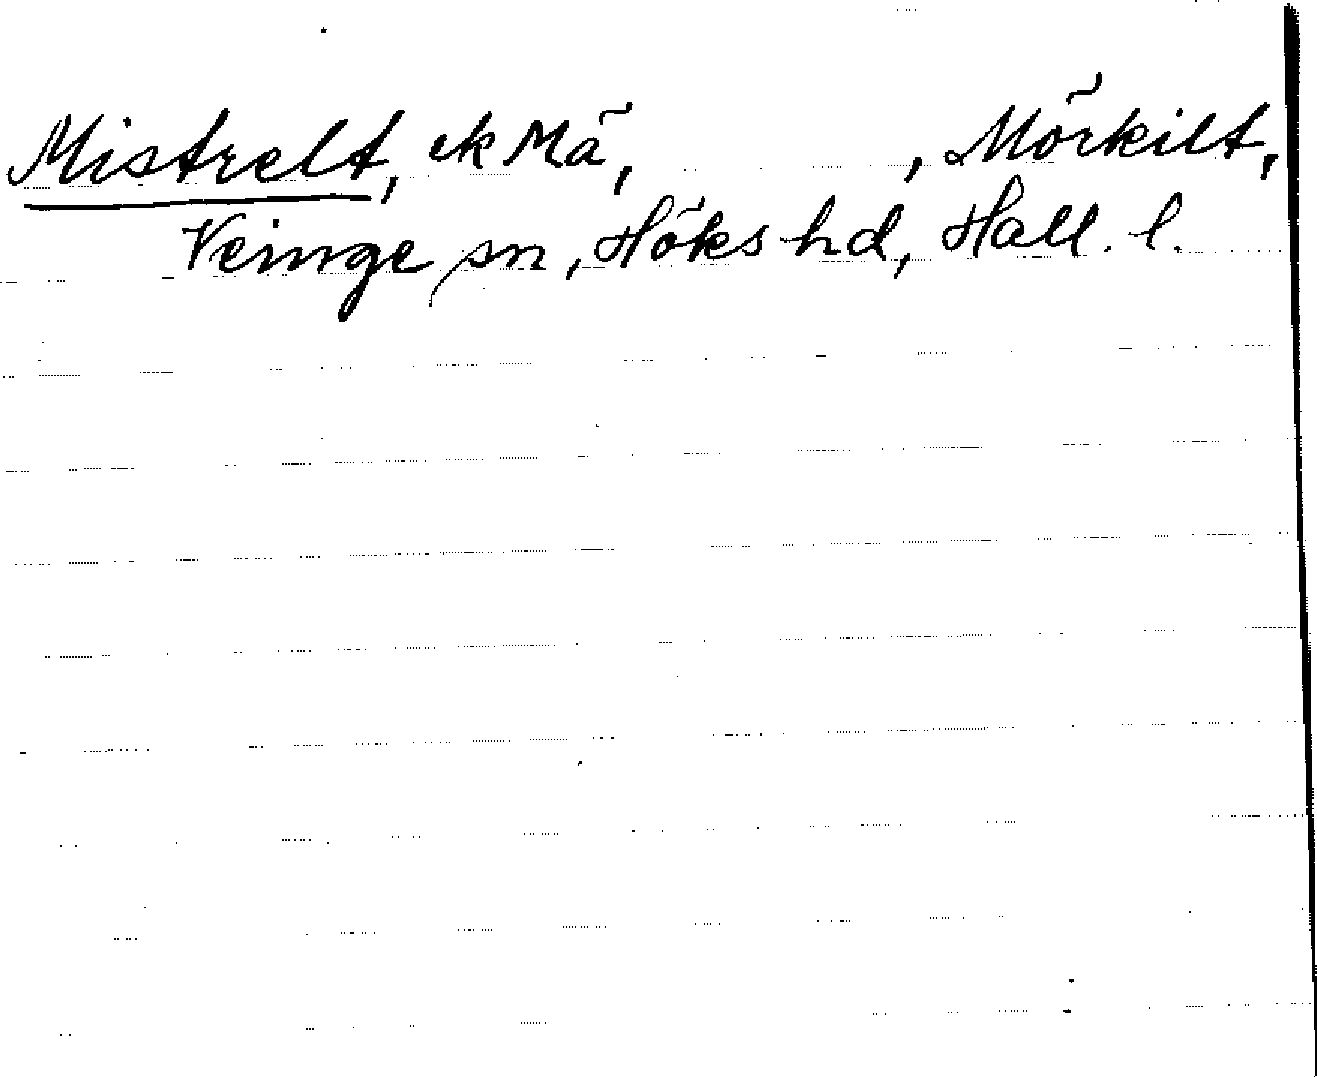 Mistrelt, ek Mā, , Mörkilt,
Veinge sn, Höks hd, Hall. l.